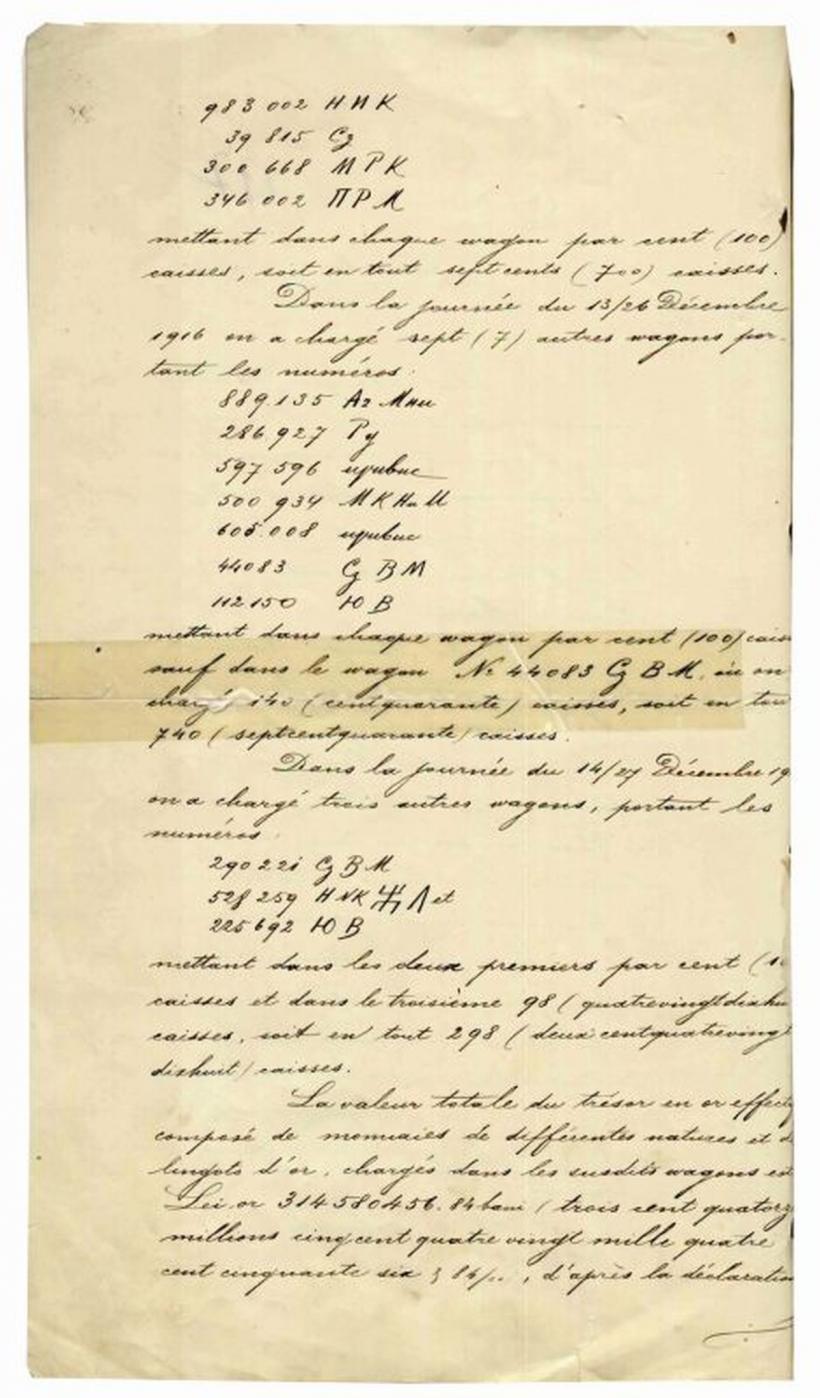 983 002 Н И К
39 815 Сз
300 668 М Р К
346 002 П Р М
mettant dans chaque wagon par cent (100)
caisses, soit en tout sept cents (700) caisses.
Dans la journée du 13/26 Décembre
1916 on a chargé sept (7) autres wagons por-
tant les numéros:
889.135 Аз
286 927 Ру
597 596
500 934 М К Н
605.008
44083 Сз В М
112 150 Ю В
mettant dans chaque wagon par cent (100) cais
sauf dans le wagon № 44083 Сз В М, où on
chargé 140 (centquarante) caisses, soit en tou
740 (septcentquarante) caisses.
Dans la journée du 14/27 Décembre 19
on a chargé trois autres wagons, portant les
numéros:
290 221 Сз В М
528 259 et
225 692 Ю В
mettant dans les deux premiers par cent (10
caisses et dans le troisième 98 (quatrevingtdixhu
caisses, soit en tout 298 (deux centquatrevingt
dixhuit) caisses.
La valeur totale du trésor en or effecti
composé de monnaies de différentes natures et d
lingots d'or, chargés dans les susdits wagons est
Lei or 314 580 456. 84 bani (trois cent quatorz
millions cinq cent quatre vingt mille quatre
cent cinquante six § 84/.., d'après la déclaration